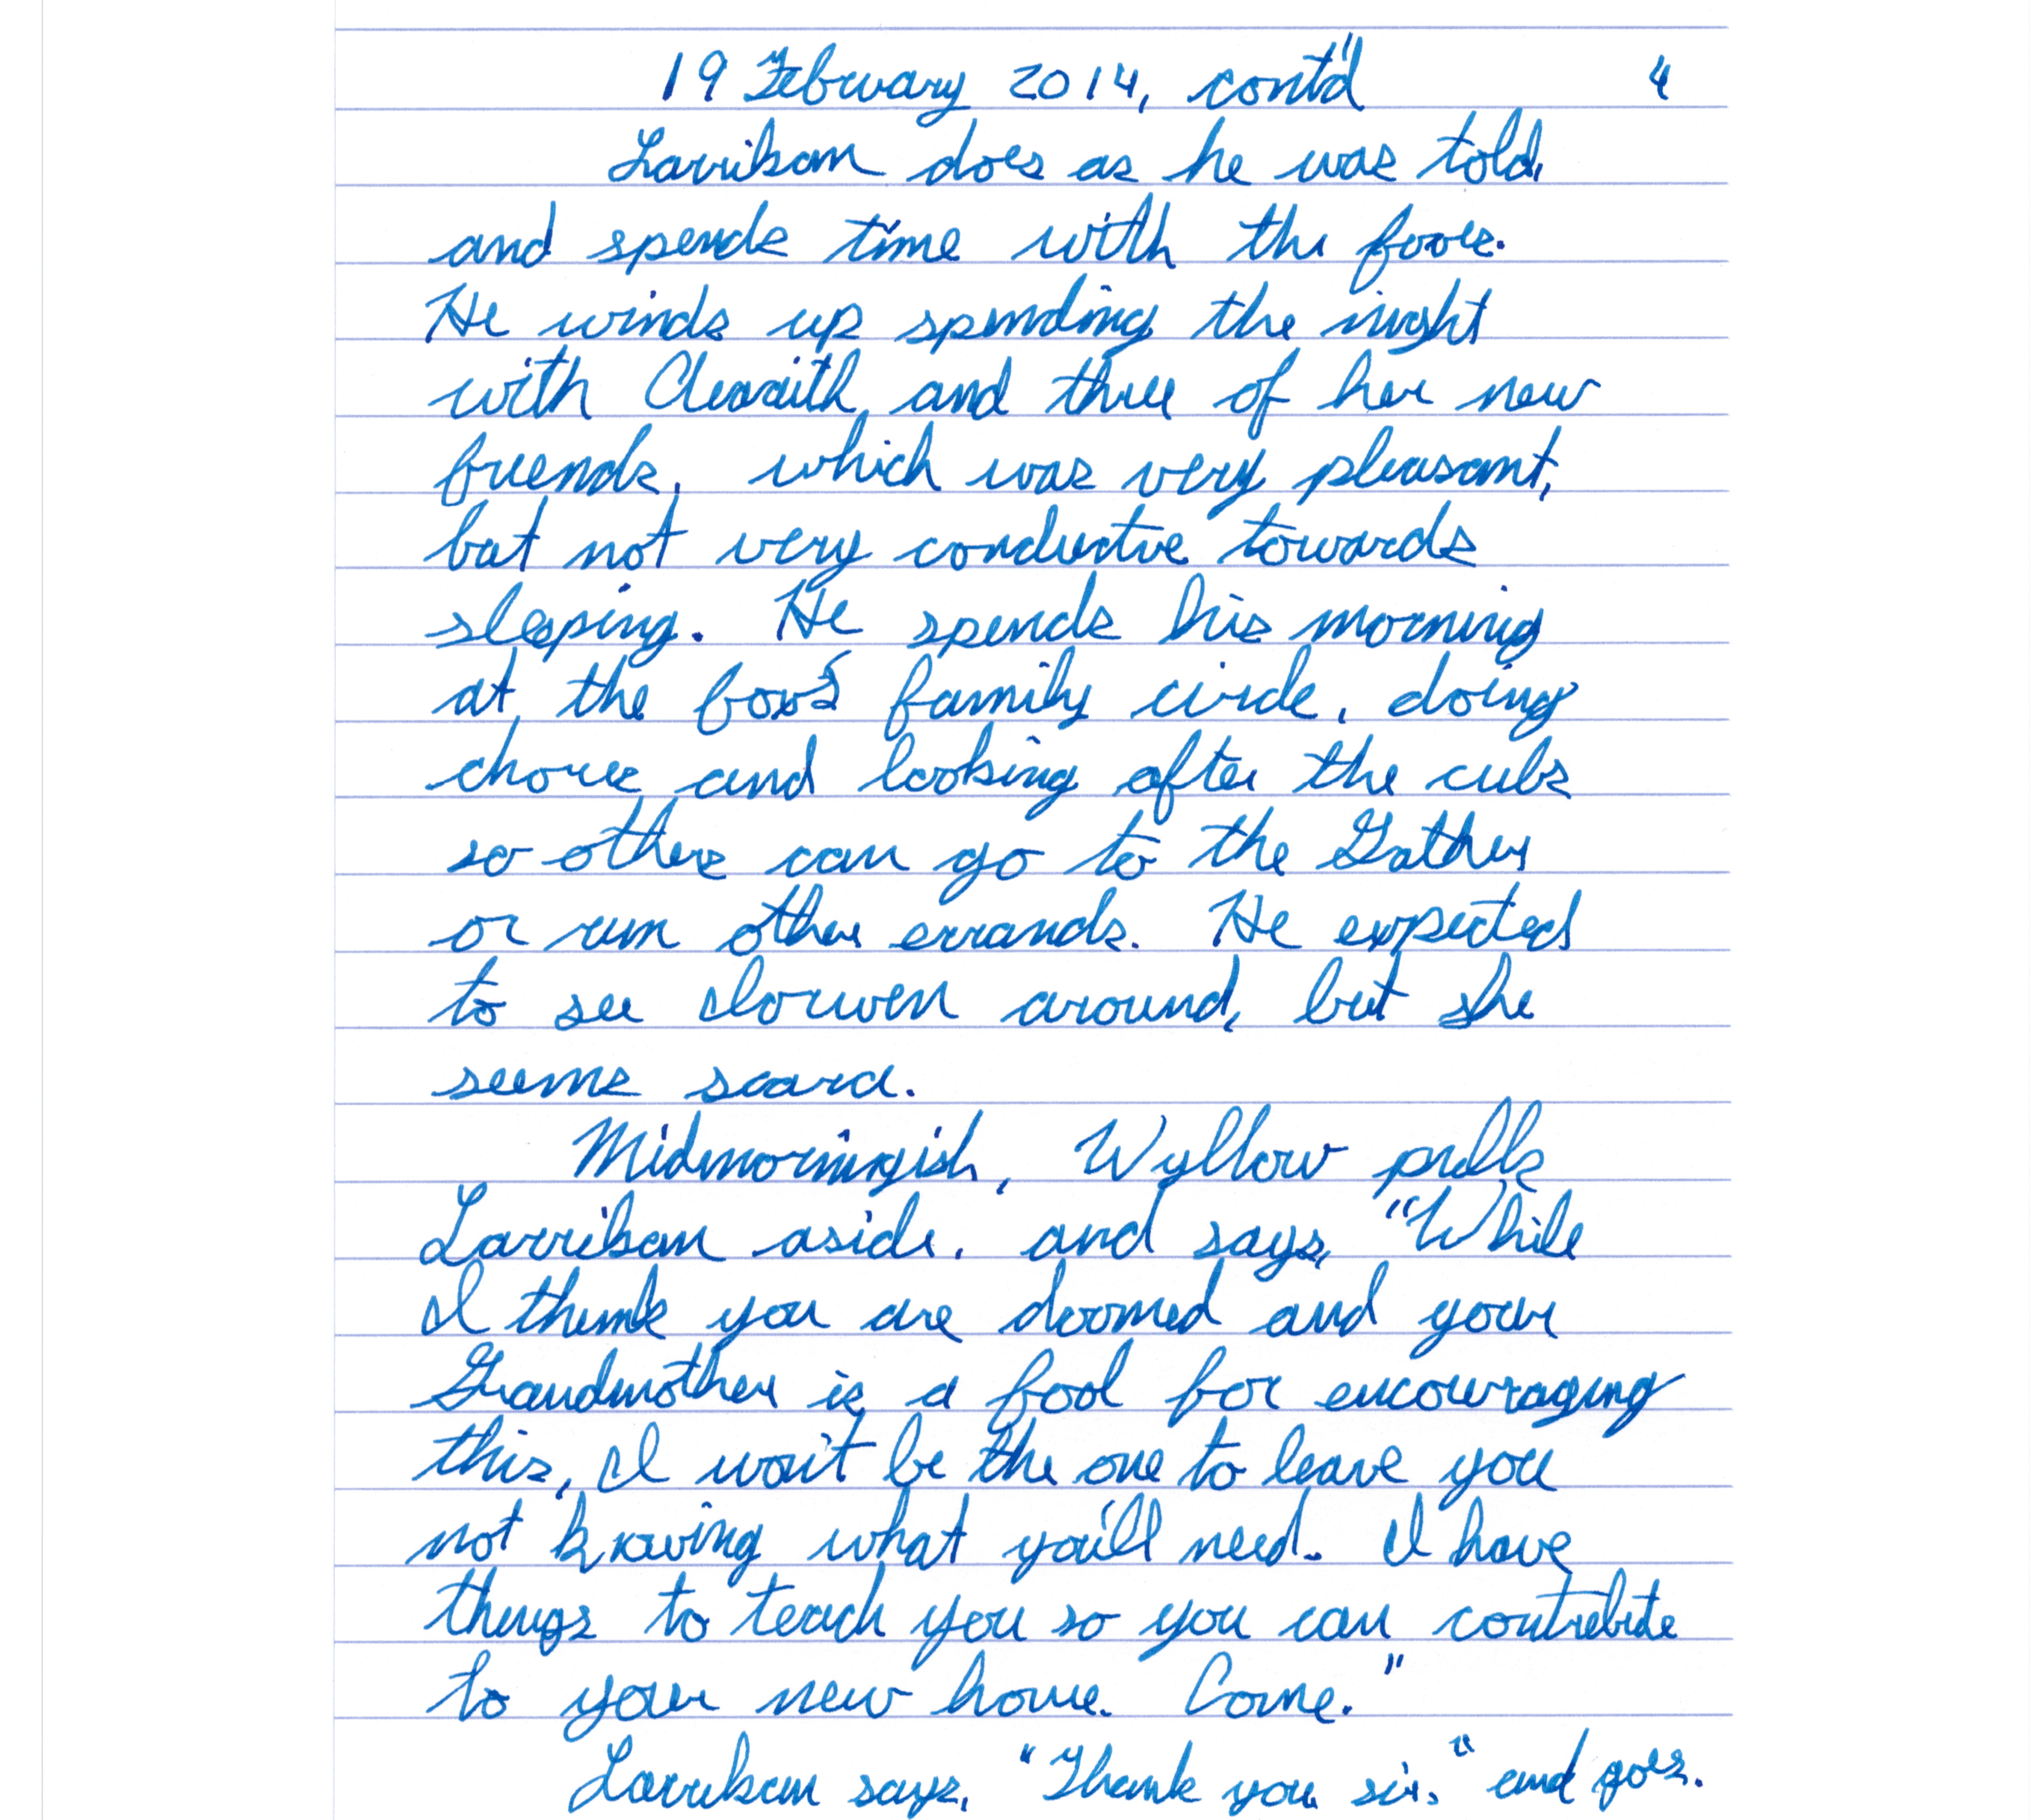 19 February 2014, cont'd 4
Larrikan does as he was told,
and spends time with the foxes.
He winds up spending the night
with and three of her new
friends, which was very pleasant,
but not very conducive towards
sleeping. He spends his morning
at the fox's family circle, doing
chores and looking after the cubs
so others can go to the Gather
or run other errands. He expected
to see around, but she
seems scarce.
Midmorningish, Wyllow pulls
Larrikan aside, and says, "While
I think you are doomed and your
Grandmother is a fool for encouraging
this, I won't be the one to leave you
not knowing what you'll need. I have
things to teach you so you can contribute
to your new home. Come."
Larrikan says, "Thank you, sir." and goes.